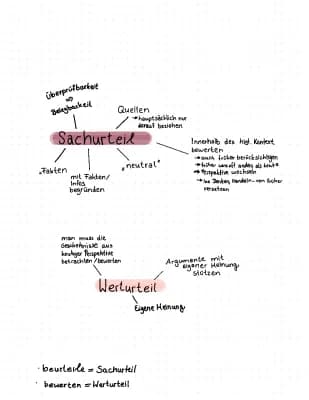 Überprüfbarkeit
⇒
Belegbarkeit
Quellen
→ hauptsächlich nur
darauf beziehen
Sachurteil
"Fakten
mit Fakten/
Infos
begründen
„neutral"
Innerhalb des hist. Kontext
bewerten
→ auch früher berücksichtigen
→ früher war oft anders als heute
→ Perspektive wechseln
→ ins Denken, Handeln von früher
versetzen
man muss die
Geschehnisse aus
heutiger Perspektive
betrachten/bewerten
Argumente mit
eigener Meinung
stützen
Werturteil
Eigene Meinung
· beurteile = Sachurteil
· bewerten = Werturteil